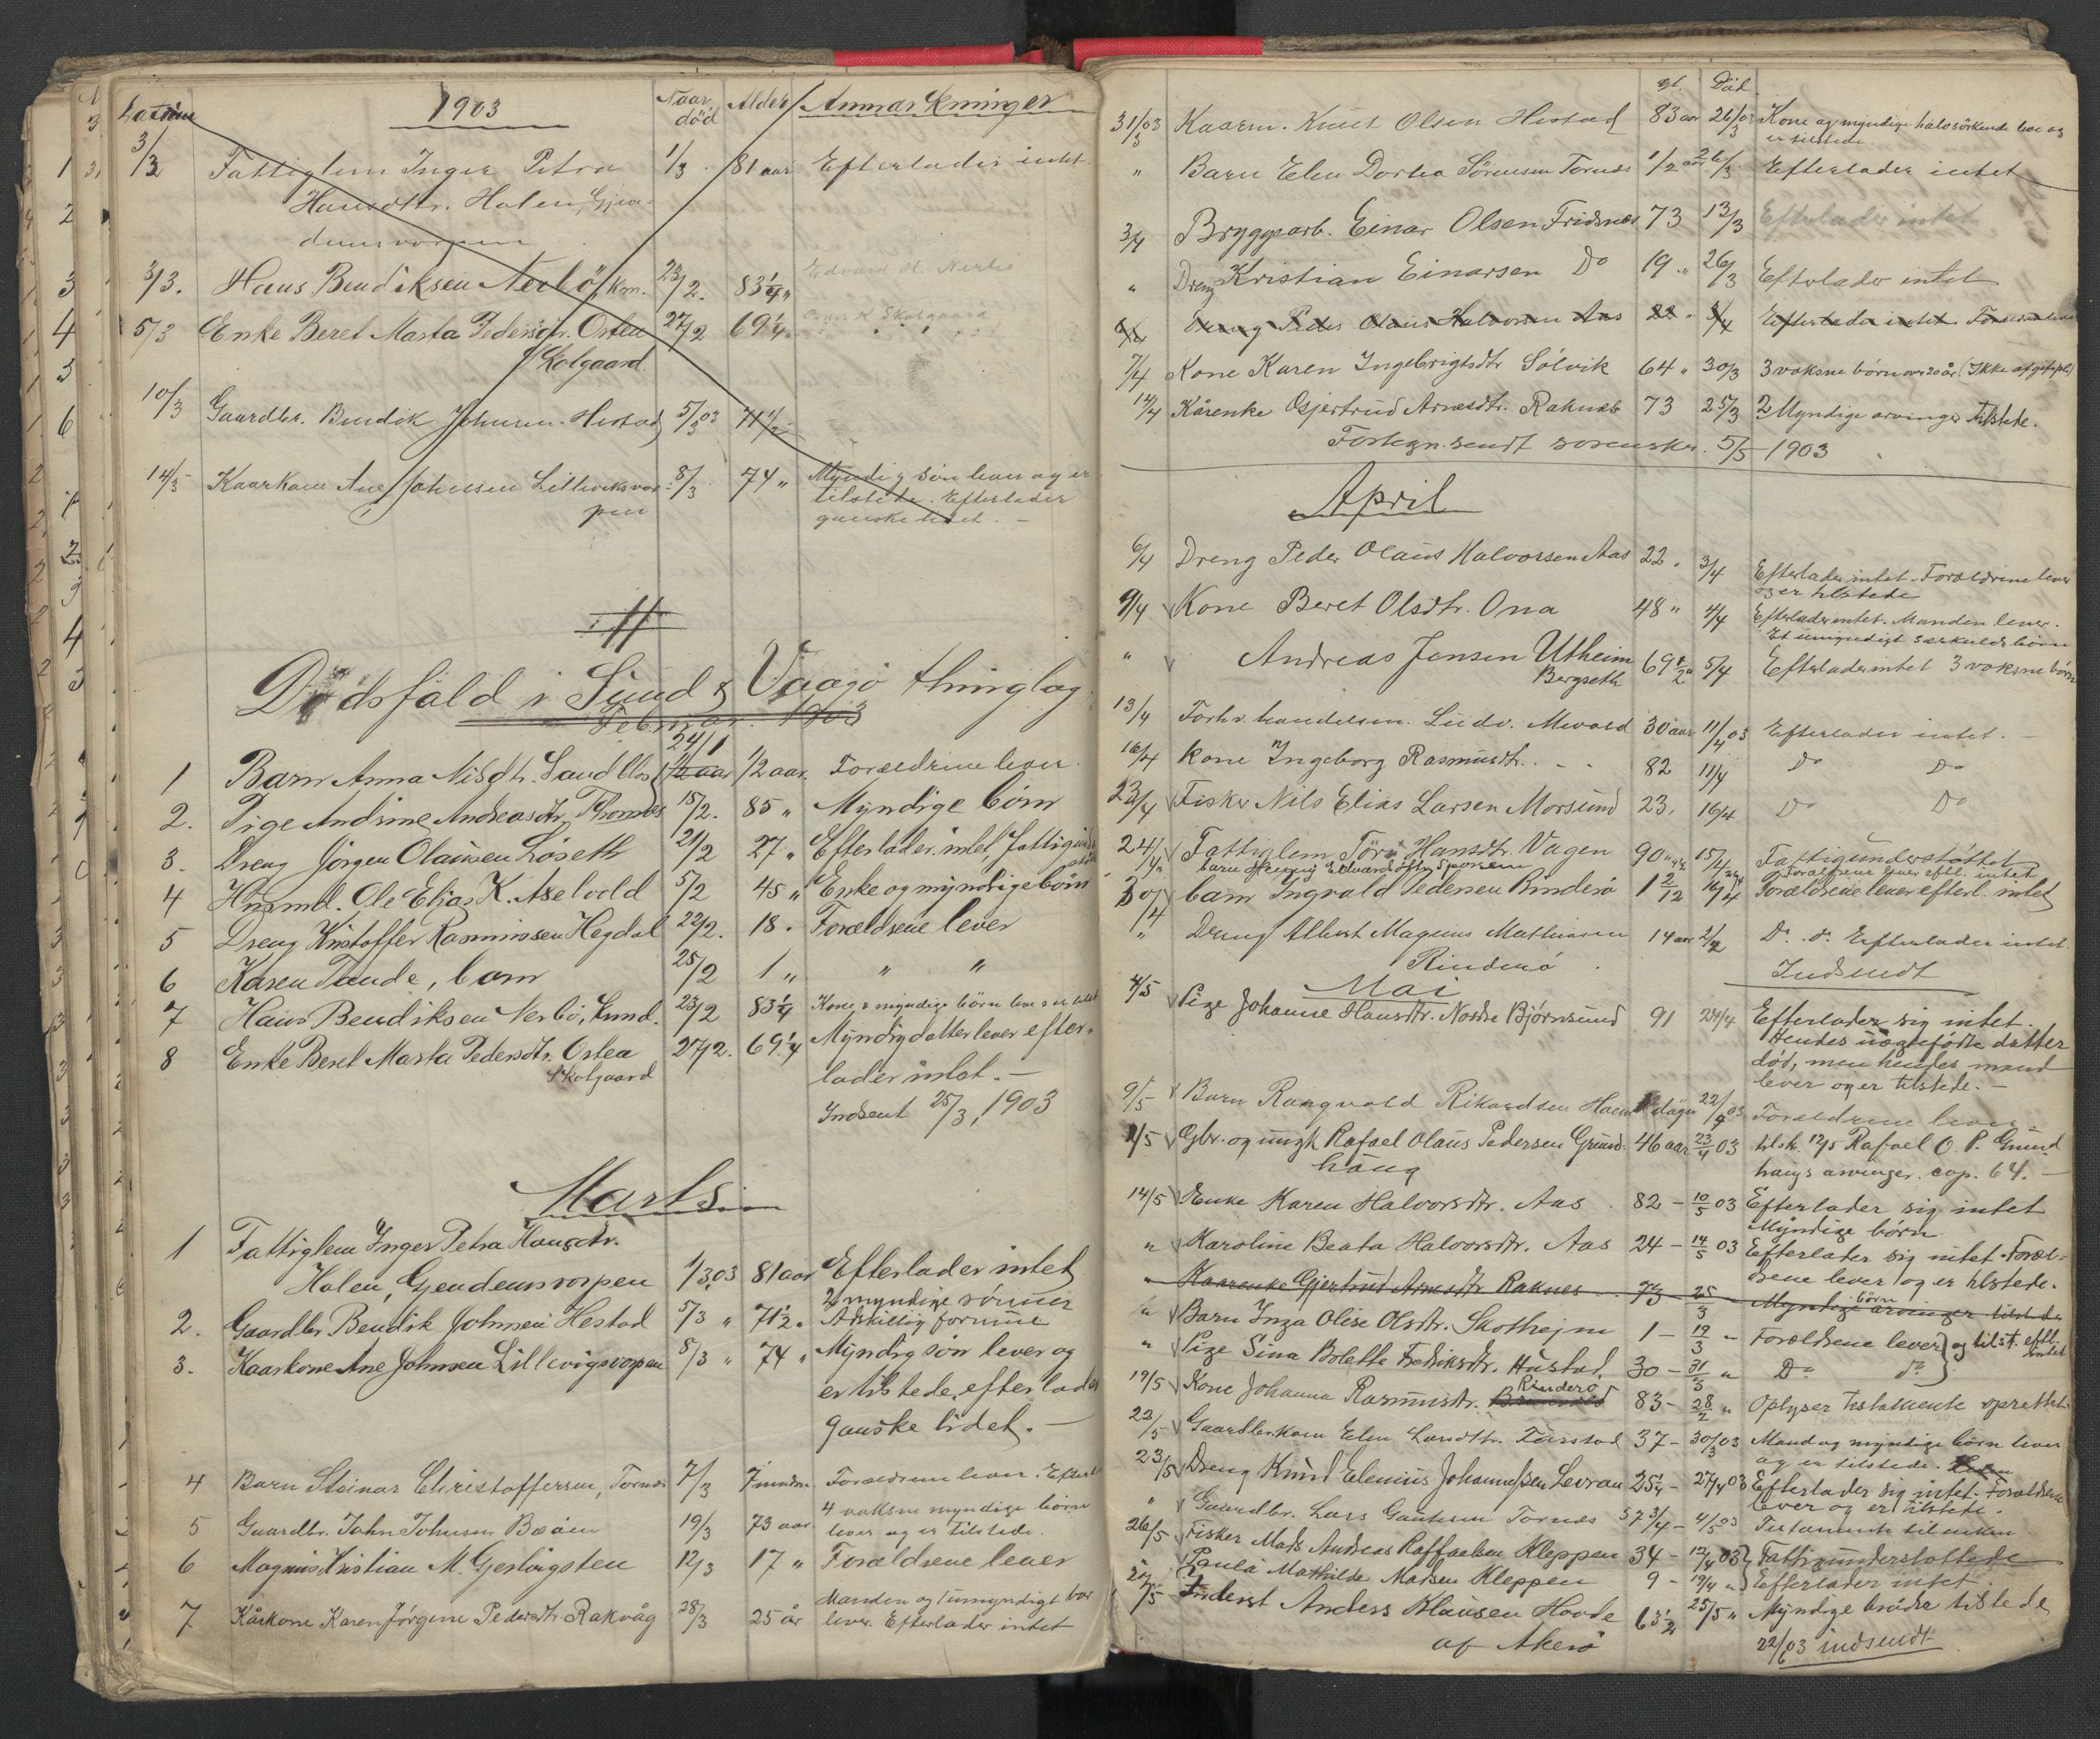 1903 Naar død Alder Anmærkninger
3/3 Fattiglem Inger Petra 1/3 81 aar Efterlader intet
Hansdtr. Halen, Gjen-
demsvorpen
3/3. Hans Bendiksen Nerbö, km. 23/2. 83 1/4 " Edvard H. Nerbö
5/3 Enke Beret Marta Pedersdtr. Ostea 27/2 69 1/4 " K Skolgaard
Skolgaard
10/3 Gaardbr. Bendik Johnsen Hestad 5/3 03 71 1/2
14/3 Kaarkone Ane Johnsen Lilleviksvor- 8/3 74 " Myndig sön lever og er
pen tilstede. Efterlader
ganske lidet. —
Dødsfald i Sund & Vaagö thinglag
Februar 1903
24/1
1 Barn Anna Nilsdtr. Sandblost 1/2 aar 1/2 aar. Forældrene lever
2. Pige Andrine Andreasdtr. Thornes 15/2. 85 " Myndige börn
3. Dreng Jörgen Olaussen Löseth 21/2 27 " Efterlader intet, fattigunder
4 Husmd. Ole Elias K. Aselvold 5/2 45 " Enke og myndige börn
5 Dreng Kristoffer Rasmussen Hegdal 22/2. 18. Forældrene lever
6 Karen Tande, barn 25/2 1 " " "
7 Hans Bendiksen Nerbö, kmd. 23/2 83 1/4 Kone & myndige börn lever & er tilst
8 Enke Beret Marta Pedersdtr. Ostea 27/2. 69 1/4 Myndig datter lever efter-
Skolgaard lader intet. —
Indsent 25/3, 1903
Marts
1 Fattiglem Inger Petra Hansdtr.
Halen, Gjendemsvorpen 1/3 03 81 aar Efterlader intet
2 myndige sönner
2. Gaardbr Bendik Johnsen Hestad 5/3 " 71 1/2 " Adskillig formue
3. Kaarkone Ane Johnsen Lillevigsvorpen 8/3 " 74 " Myndig sön lever og
er tilstede, efterlader
ganske lidet. —
4 Barn Steinar Christoffersen, Tornes 7/3 7 mndr. Forældrene lever. Efterl
4 voksne myndige börn
5 Gaardbr. John Johnsen Boåen 19/3 73 aar lever og er tilstede.
6 Magnus Kristian M. Gerlingsten 12/3 17 " Forældrene lever
Manden og 1 umyndigt bar
7 Kårkone Karen Jørgine Pedersdtr Rakvåg 28/3 25 år lever. Efterlader intet
gl. Död
31/3 03 Kaarm. Knut Olsen Hestad 83 aar 26/3 03 Kone og myndige halvsöskende lever og
er tilstede
" Barn Elen Dortea Sörensen Tornes 1/2 aar 26/3. Efterlader intet
3/4 Bryggearb. Einar Olsen Fridsnes 73 13/3 Efterlader intet
" Dreng Kristian Einarsen Do 19 " 26/3 Efterlader intet
6/4 Dreng Peder Olaus Halvorsen Aas 22 " 3/4 Efterlader intet. Forældrene lever
7/4 Kone Karen Ingebrigtsdtr Sólvik 64 " 30/3 3 voksne börn over 20 år (Ikke opgit fuld)
14/4 Kårenke Gjertrud Arnesdtr. Raknes 73 25/3 2 Myndige arvinger tilstede.
Fortegn. sendt sorenskr. 5/5 1903
April
6/4 Dreng Peder Olaus Halvorsen Aas 22. 3/4 Efterlader intet. Forældrene lever
og er tilstede
9/4 Kone Beret Olsdtr. Ona 48 " 4/4 Efterlader intet. Manden lever.
Et umyndigt særkuldsbörn
" Andreas Jensen Utheim 69 1/2 " 5/4 Efterlader intet 3 voksne börn
Bergseth
13/4 Forhv. handelsm. Ludv. Mevold 30 aar 11/4 03 Efterlader intet. —
16/4 Kone Ingeborg Rasmusdtr. - - 82 11/4 Do Do
23/4 Fisker Nils Elias Larsen Morsund 23, 16/4 Do Do
24/4 Fattiglem Hansdtr. Vagen 90 " 15/4 Fattigunderstöttet
Forældrene lever efterl. intet
30/4 barn Ingvald Pedersen Rinderö 1 2/12 16/4 Forældrene lever efterl. intet
" Dreng Albert Magnus Mathiasen 14 aar 2/2 Do. do. Efterlader intet.
Rinderö Indsendt
Mai
4/5 Pige Johanne Hansdtr. Nordre Björnsund 91 24/4 Efterlader sig intet.
Hendes uægtefödte datter
död, men hendes mand
lever og er tilstede. —
9/5 Barn Rangvald Rikardsen dage 22/4 03 Forældrene lever
Gbr. og ungk Rafael Olaus Pedersen Grund- 46 aar 23/4 03 tilsk. 12/5 Rafael O. P. Grund
haug haugs arvinger. cap. 64. —
14/5 Enke Karen Halvorsdtr. Aas 82 — 10/5 03 Efterlader sig intet
Myndige börn
" Karoline Beata Halvorsdtr. Aas 24 — 14/5 03 Efterlader sig intet. Foræl-
drene lever og er tilstede.
" Kaarenke Gjertrud Arnesdtr Raknes 73 — 25/3 Myndige börn arvinger tilstede
" Barn Inga Olise Olsdtr. Skothejm 1 — 19/3 " Forældrene lever } og tilst. eftl. intet
" Pige Sina Bolette Fredriksdtr. Hustad. 30 — 31/3 " Do do
19/5 Kone Johanna Rasmusdtr. Rinderö 83 — 28/2 " Oplyser testamente oprettet
22/5 Gaardbrkone Elen Larsdtr. Torstad 37 — 30/3 03 Mand og myndige börn lever
og er tilstede.
23/5 Dreng Knud Elenius Johannessen Levran 25 1/4 — 27/4 03 Efterlader sig intet. Forældrene
lever og er tilstede.
" Gaardbr. Lars Gautesen Tornes 57 3/4 — 4/5 03 Testamente til enken
26/5 Fisker Mads Andreas Raffaelsen Kleppen 34 — 12/4 03 } Fattigunderstöttede
Paula Mathilde Madsen Kleppen 9 — 19/4 " } Efterlader intet
27/5 Inderst Anders Klausen Hovde 63 1/2 25/5 " Myndige brödre tilstede
af Akerö 22/6 03 indsendt